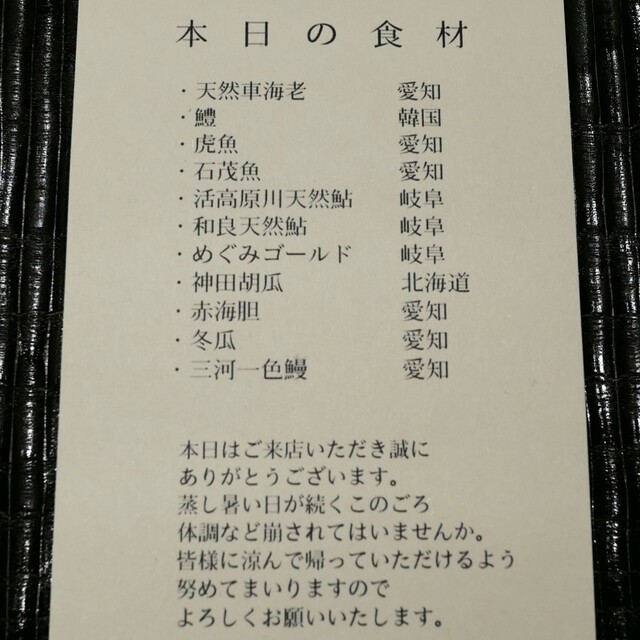 本日の食材
・天然車海老 愛知
・鱧 韓国
・虎魚 愛知
・石茂魚 愛知
・活高原川天然鮎 岐阜
・和良天然鮎 岐阜
・めぐみゴールド 岐阜
・神田胡瓜 北海道
・赤海胆 愛知
・冬瓜 愛知
・三河一色鰻 愛知
本日はご来店いただき誠に
ありがとうございます。
蒸し暑い日が続くこのごろ
体調など崩されてはいませんか。
皆様に涼んで帰っていただけるよう
努めてまいりますので
よろしくお願いいたします。